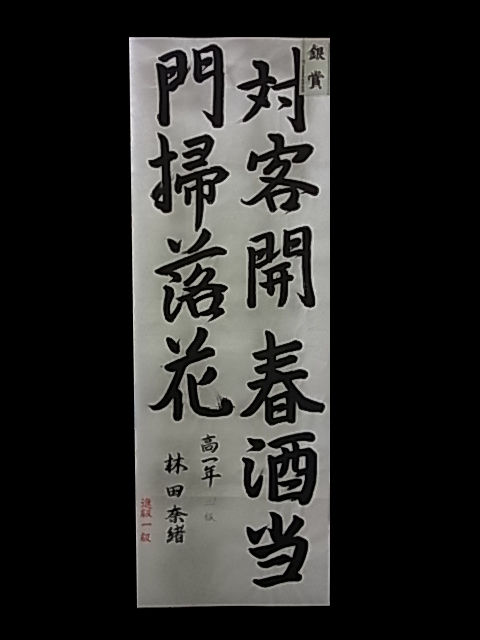 銀賞
対客開春酒当
門掃落花
高一年
林田奈緒
進級一級